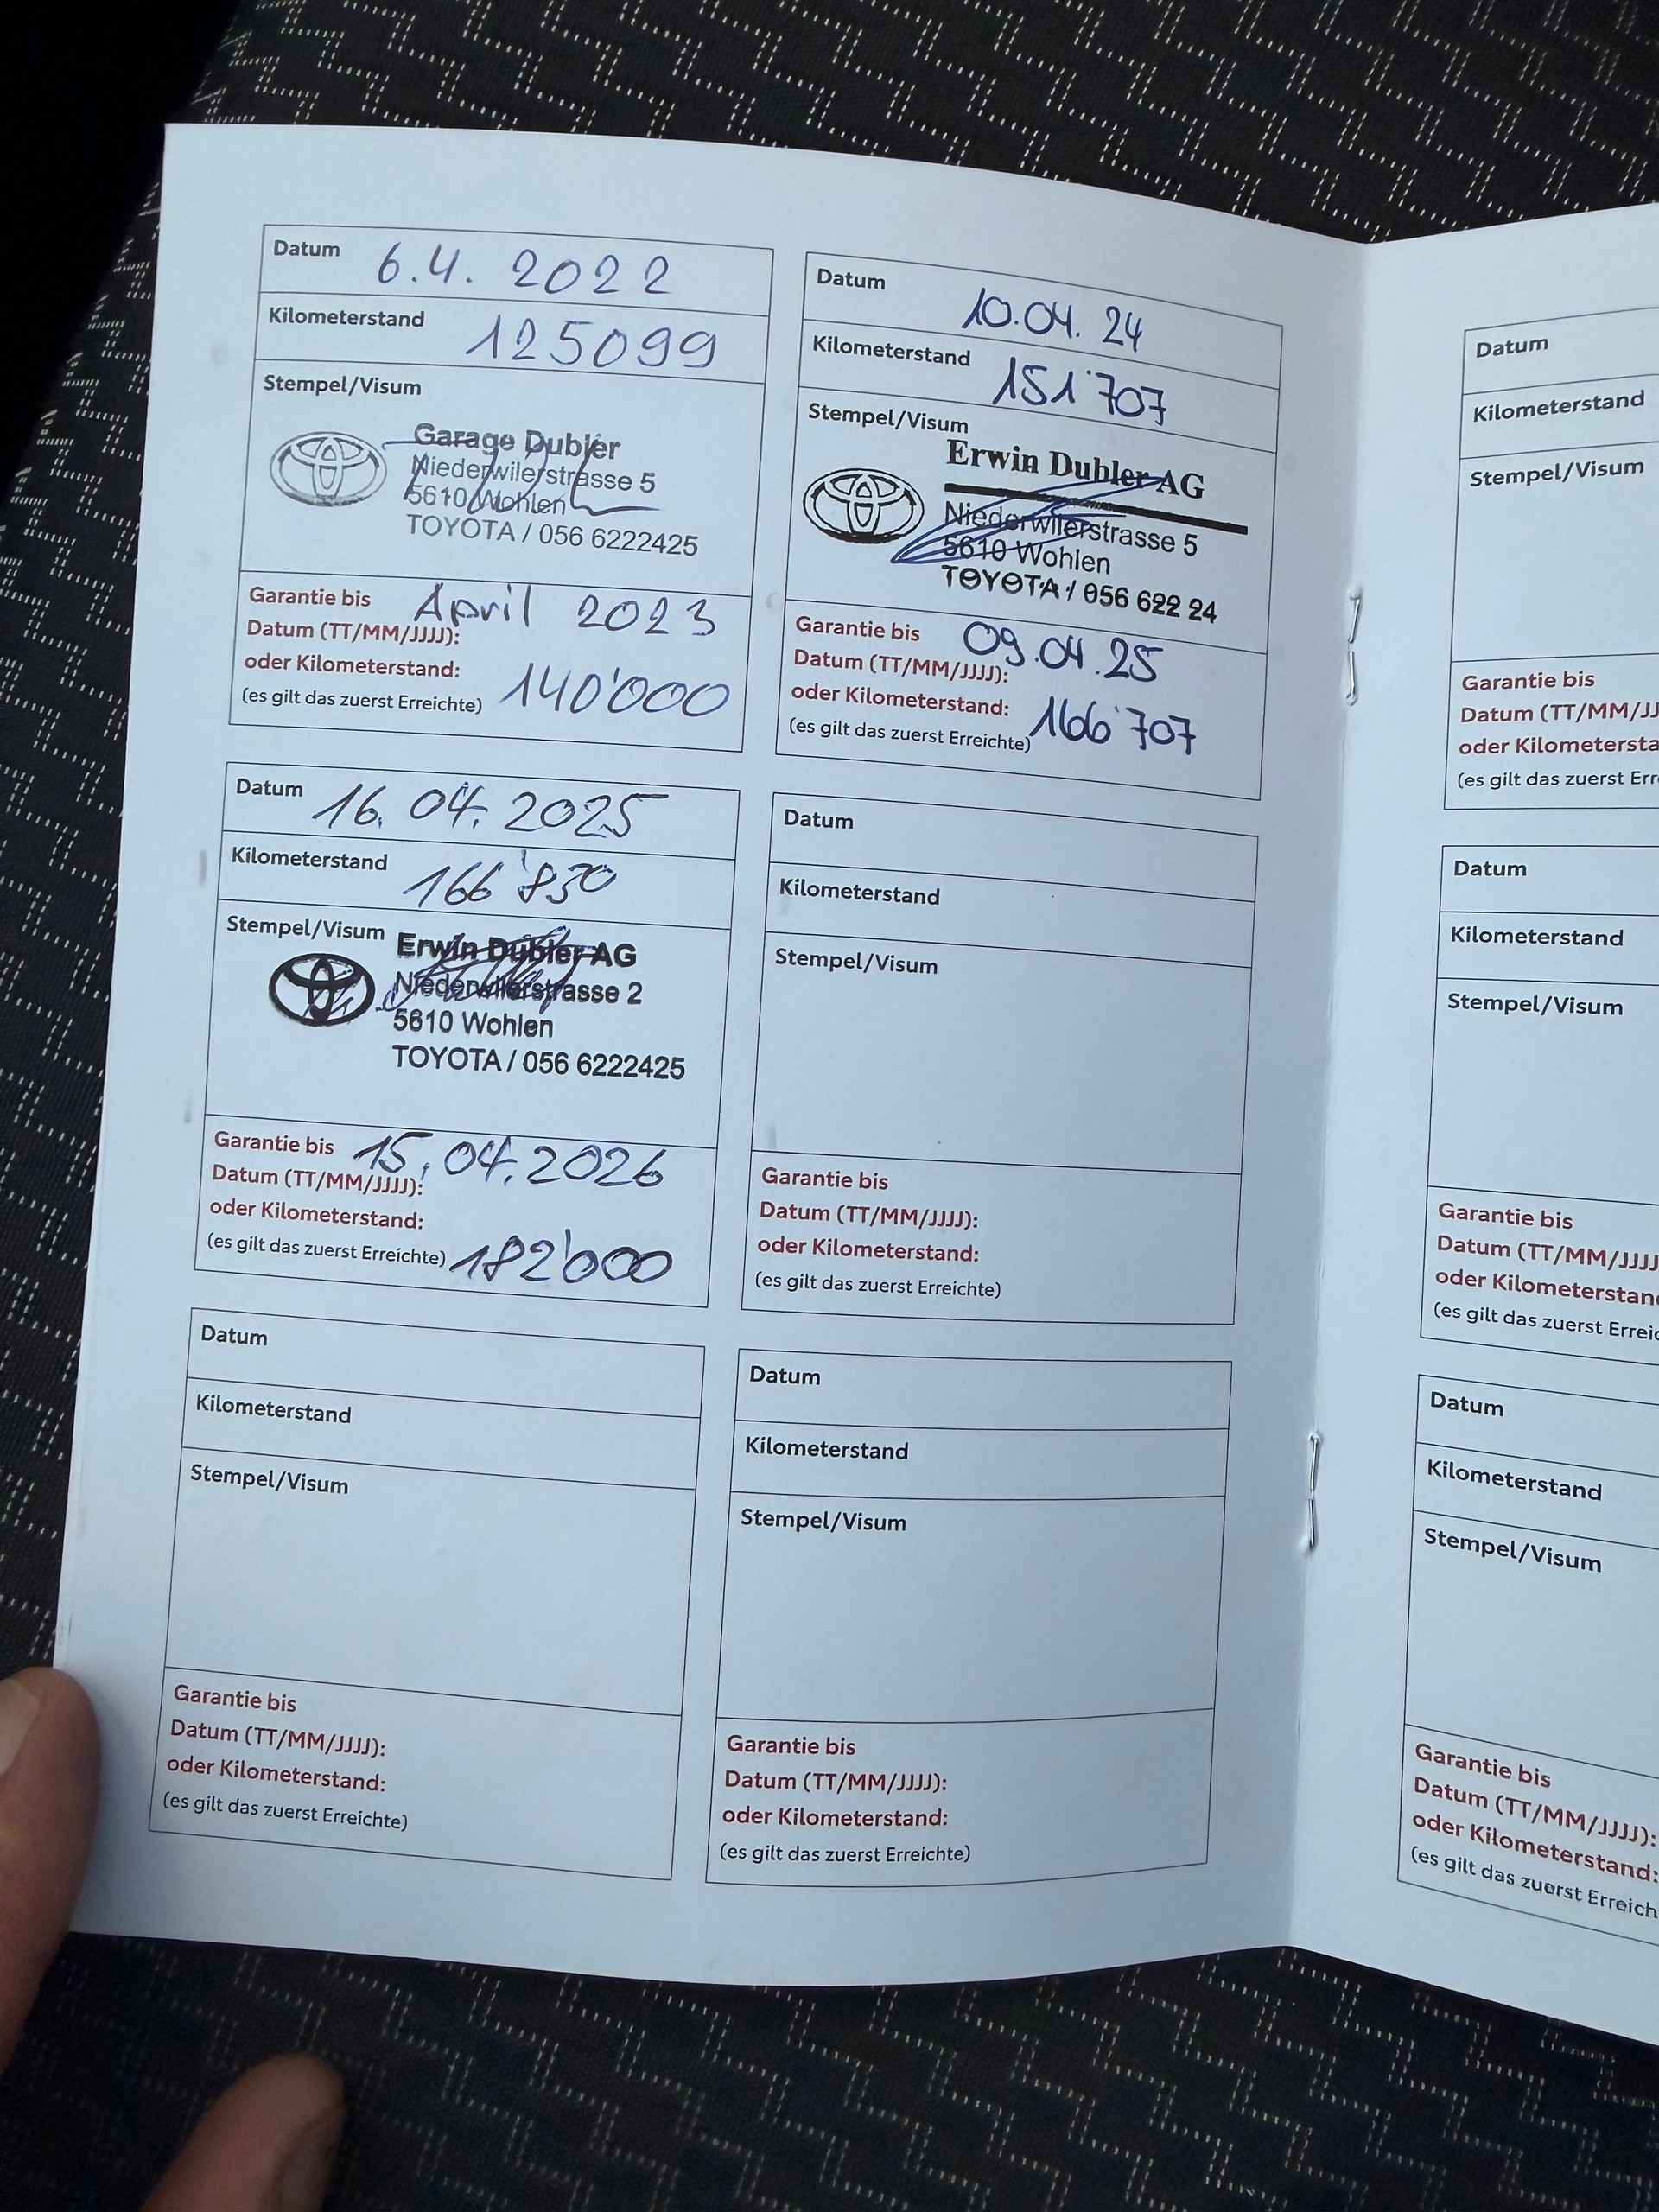 Datum 6.4. 2022
Kilometerstand 125099
Stempel/Visum
Garage Dubler
Niederwilerstrasse 5
5610 Wohlen
TOYOTA / 056 6222425
Garantie bis April 2023
Datum (TT/MM/JJJJ):
oder Kilometerstand: 140'000
(es gilt das zuerst Erreichte)
Datum 10.04. 24
Kilometerstand 151'707
Stempel/Visum
Erwin Dubler AG
Niederwilerstrasse 5
5610 Wohlen
TOYOTA / 056 622 24
Garantie bis 09.04.25
Datum (TT/MM/JJJJ):
oder Kilometerstand: 166'707
(es gilt das zuerst Erreichte)
Datum 16. 04. 2025
Kilometerstand 166'850
Stempel/Visum
Erwin Dubler AG
Niederwilerstrasse 2
5610 Wohlen
TOYOTA / 056 6222425
Garantie bis 15. 04. 2026
Datum (TT/MM/JJJJ):
oder Kilometerstand:
(es gilt das zuerst Erreichte) 182'000
Datum
Kilometerstand
Stempel/Visum
Garantie bis
Datum (TT/MM/JJJJ):
oder Kilometerstand:
(es gilt das zuerst Erreichte)
Datum
Kilometerstand
Stempel/Visum
Garantie bis
Datum (TT/MM/JJJJ):
oder Kilometerstand:
(es gilt das zuerst Erreichte)
Datum
Kilometerstand
Stempel/Visum
Garantie bis
Datum (TT/MM/JJJJ):
oder Kilometerstand:
(es gilt das zuerst Erreichte)
Datum
Kilometerstand
Stempel/Visum
Garantie bis
Datum (TT/MM/JJ
oder Kilometersta
(es gilt das zuerst Err
Datum
Kilometerstand
Stempel/Visum
Garantie bis
Datum (TT/MM/JJJJ
oder Kilometerstan
(es gilt das zuerst Erreic
Datum
Kilometerstand
Stempel/Visum
Garantie bis
Datum (TT/MM/JJJJ):
oder Kilometerstand:
(es gilt das zuerst Erreich